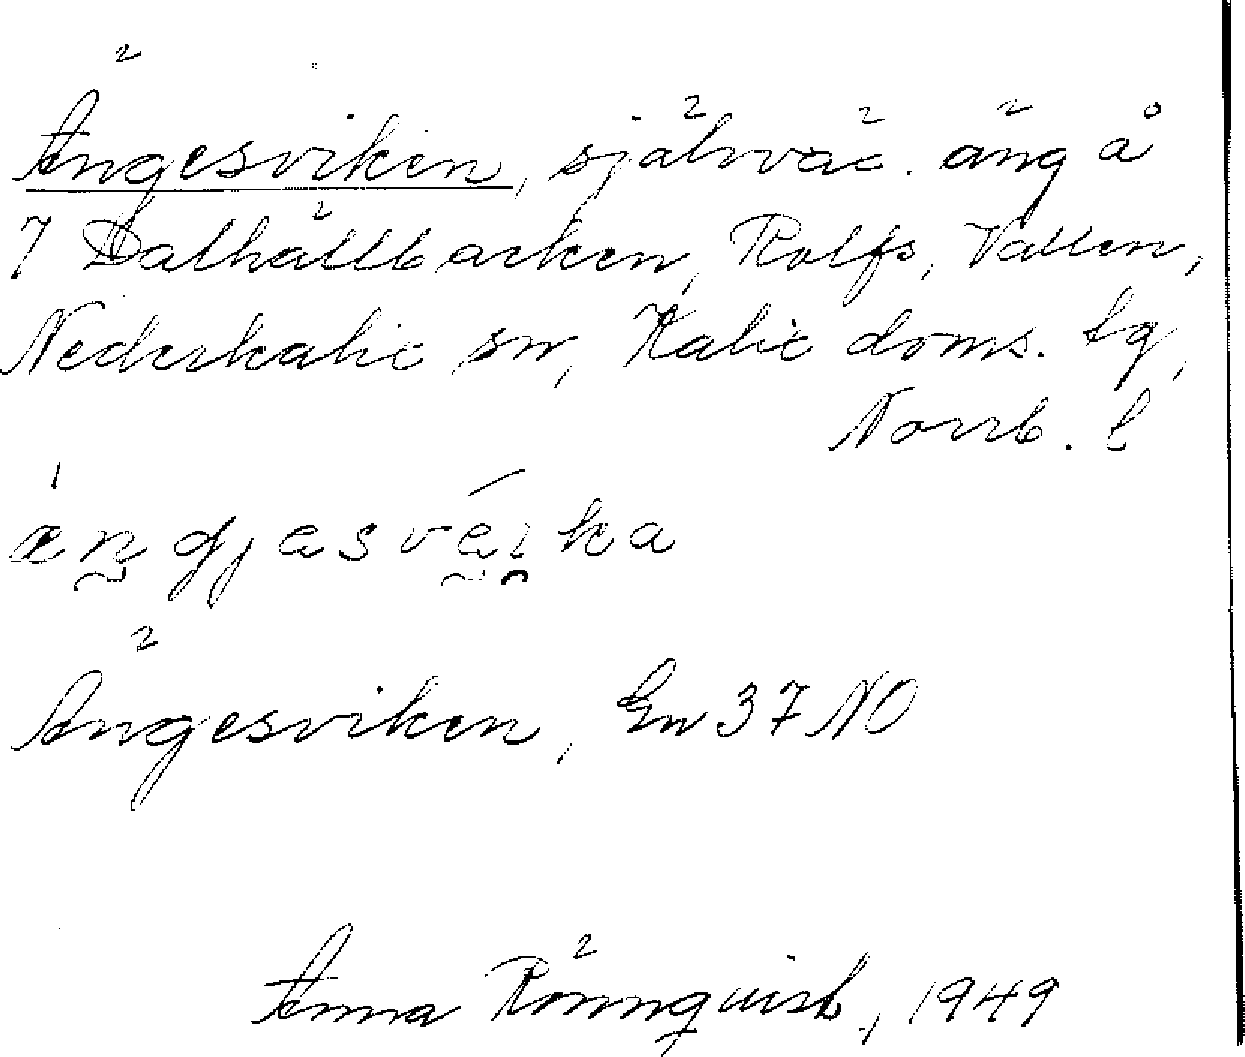 Ängesviken, självväx. äng å
7 Dalhällbacken, Rolfs, Vallen,
Nederkalix sn, Kalix doms. tg,
Norrb. l
æŋdjəsvéika
Ängesviken, En 37 NO
Anna Rönnquist, 1949